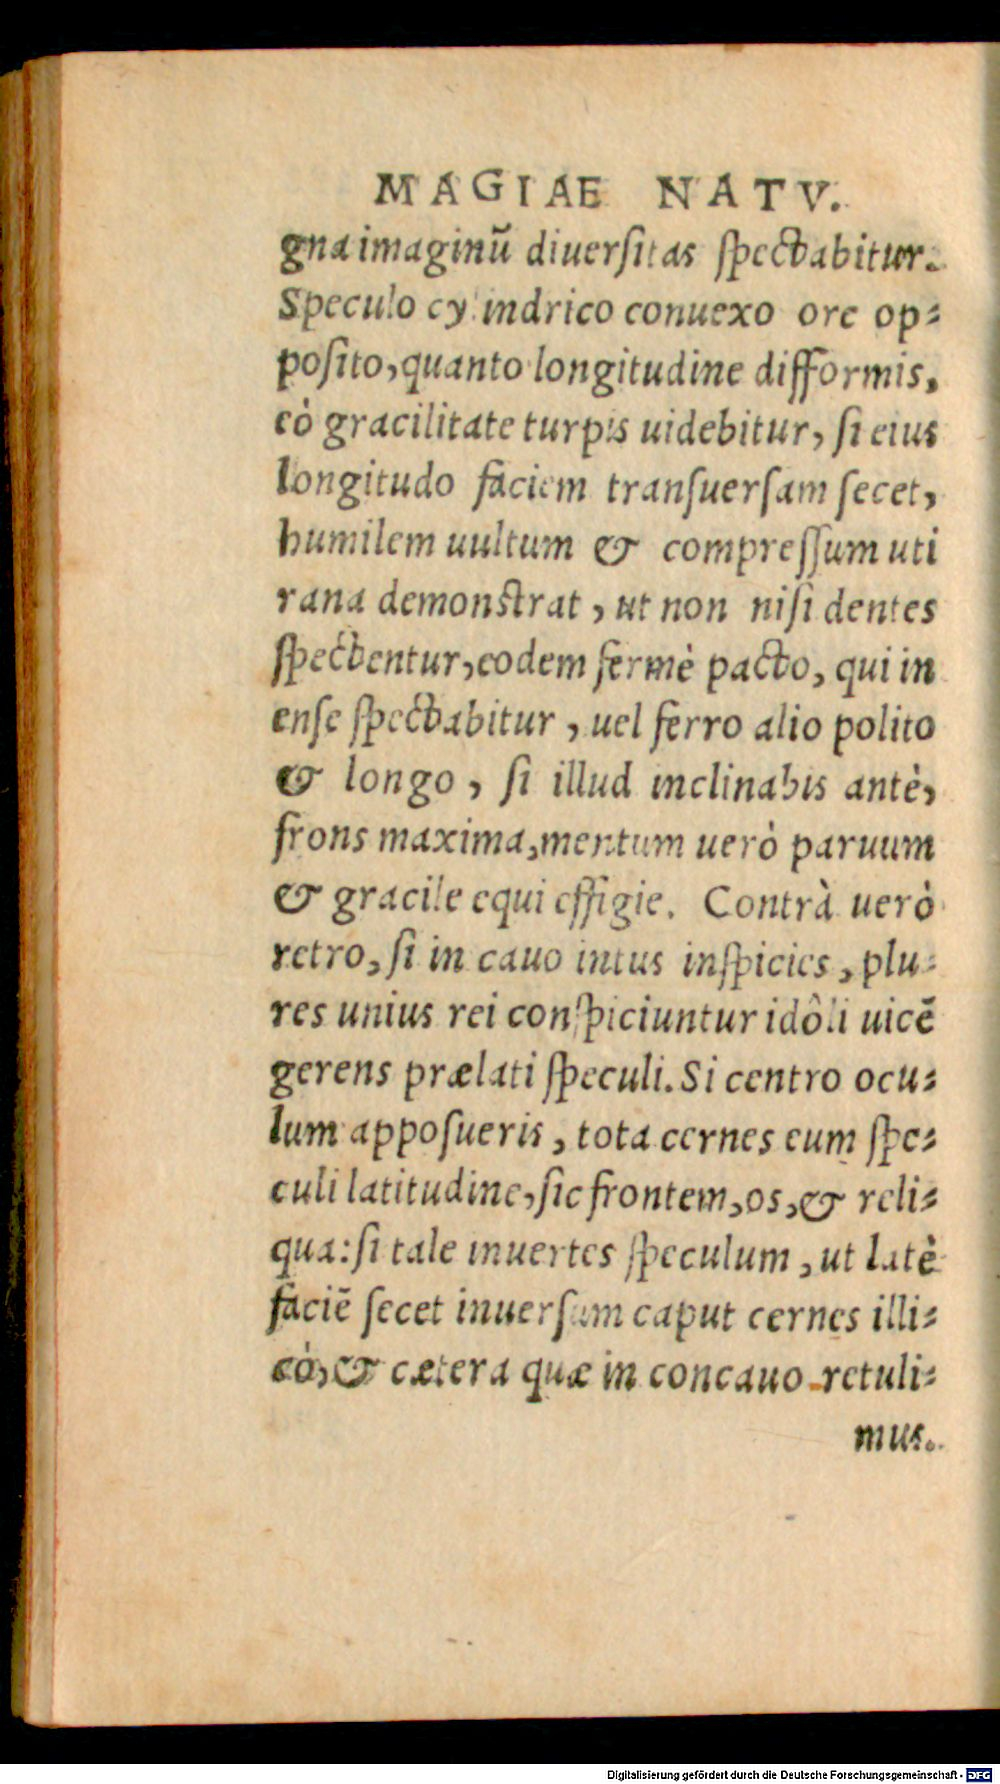 MAGIAE NATV.
gna imaginũ diuerſitas ſpectabitur.
Speculo cylindrico conuexo ore op-
poſito, quanto longitudine difformis,
eò gracilitate turpis uidebitur, ſi eius
longitudo faciem transuerſam ſecet,
humilem uultum & compreſſum uti
rana demonſtrat, ut non niſi dentes
ſpectentur, eodem fermè pacto, qui in
enſe ſpectabitur, uel ferro alio polito
& longo, ſi illud inclinabis antè,
frons maxima, mentum uerò paruum
& gracile equi effigie. Contrà uerò
retro, ſi in cauo intus inſpicies, plu-
res unius rei conſpiciuntur idôli uicẽ
gerens prælati ſpeculi. Si centro ocu-
lum appoſueris, tota cernes eum ſpe-
culi latitudine, ſic frontem, os, & reli-
qua: ſi tale inuertes ſpeculum, ut latè
faciẽ ſecet inuerſum caput cernes illi-
cò, & cætera quæ in concauo retuli-
mus.
Digitalisierung gefördert durch die Deutsche Forschungsgemeinschaft - DFG